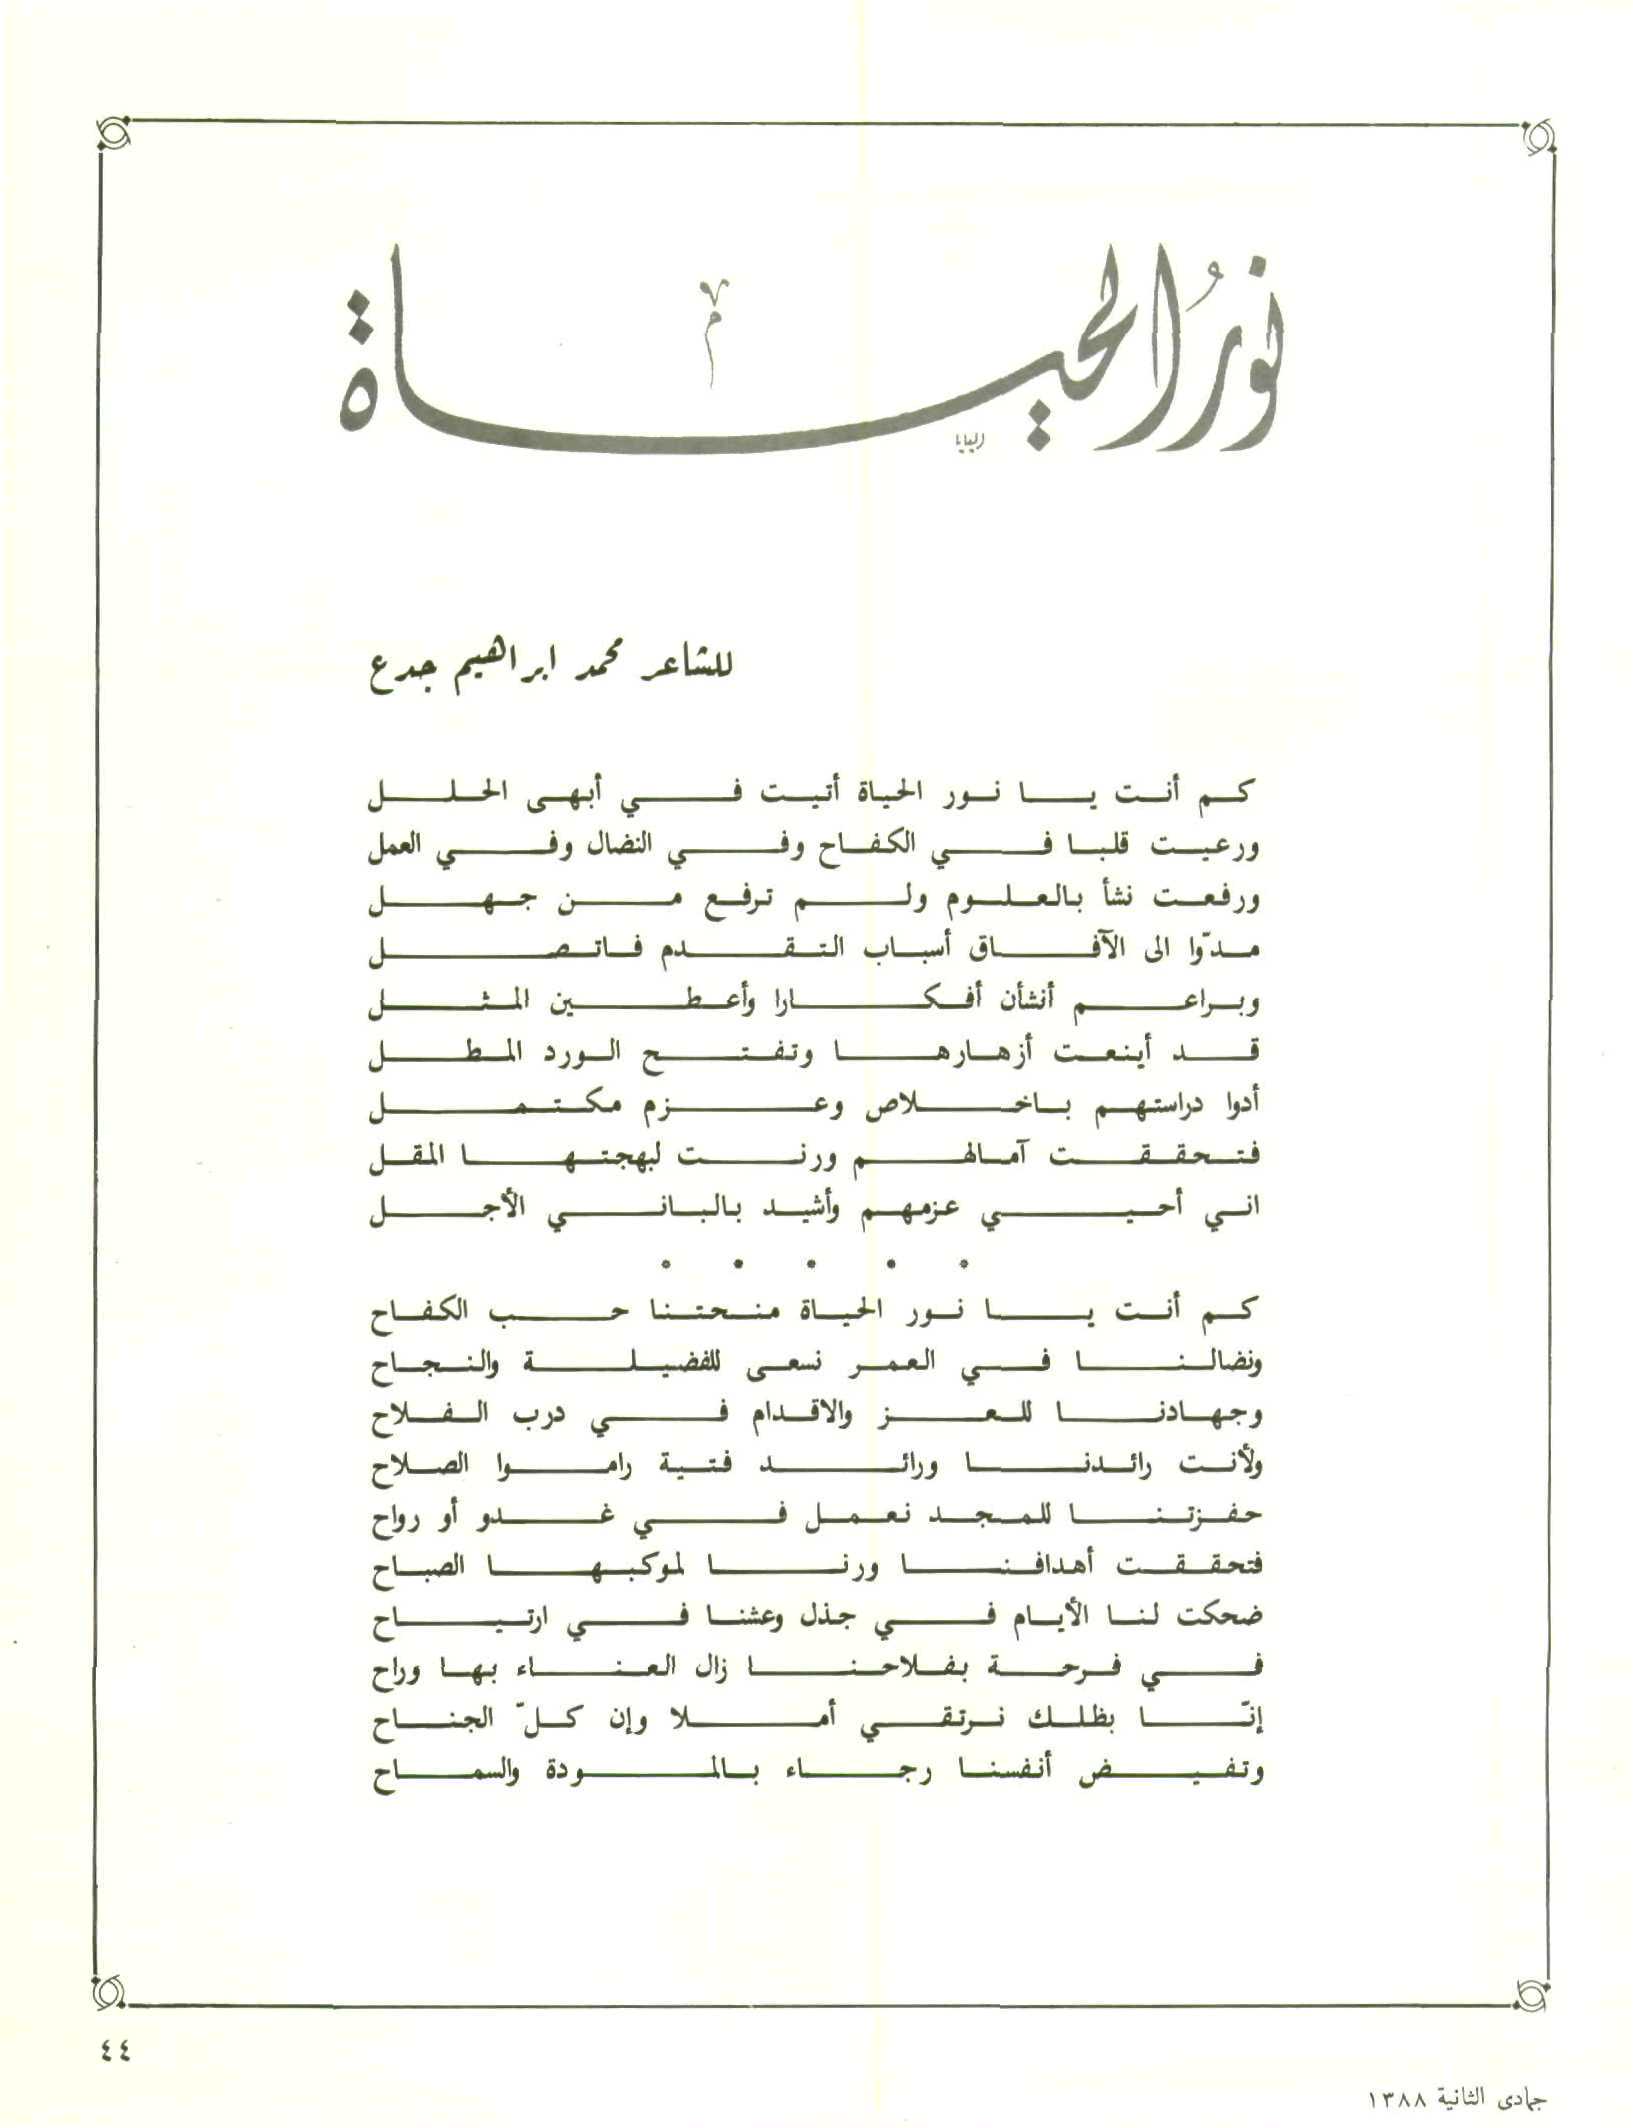 نورُ الحياة
للشاعر محمد ابراهيم جدع
كم أنت يا نور الحياة أتيت في أبهى الحلل
ورعيت قلبا في الكفاح وفي النضال وفي العمل
ورفعت نشأ بالعلوم ولم ترفع من جهل
مدّوا الى الآفاق أسباب التقدم فاتصل
وبراعم أنشأن أفكارا وأعطين المثل
قد أينعت أزهارها وتفتح الورد المطل
أدوا دراستهم باخلاص وعزم مكتمل
فتحققت آمالهم ورنت لبهجتها المقل
اني أحيي عزمهم وأشيد بالباني الأجل
* * * * *
كم أنت يا نور الحياة منحتنا حب الكفاح
ونضالنا في العمر نسعى للفضيلة والنجاح
وجهادنا للعز والاقدام في درب الفلاح
ولأنت رائدنا ورائد فتية راموا الصلاح
حفزتنا للمجد نعمل في غدو أو رواح
فتحققت أهدافنا ورنا لموكبها الصباح
ضحكت لنا الأيام في جذل وعشنا في ارتياح
في فرحة بفلاحنا زال العناء بها وراح
إنّا بظلك نرتقي أملا وإن كلّ الجناح
وتفيض أنفسنا رجاء بالمودة والسماح
٤٤
جمادى الثانية ١٣٨٨